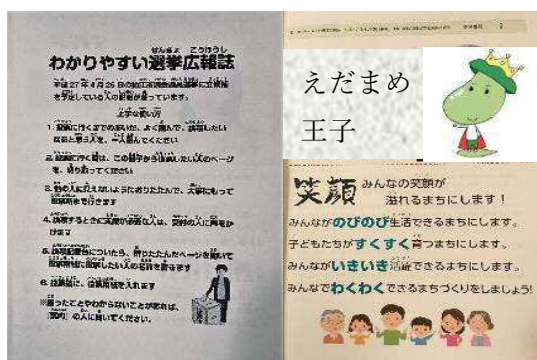 わかりやすい選挙広報誌
平成27年4月26日の狛江市議会議員選挙に立候補
を予定している人の記事が載っています。
上手な使い方
1. 投票に行くまでのあいだ、よく読んで、投票したい
なあと思う人を、一人選んでください
2. 投票に行く前は、この冊子から投票したい人のページ
を、切り取ってください
3. 他の人に見えないようにおりたたんで、大事にもって
投票所まで行きます
4. 投票するときに支援が必要な人は、受付の人に声をか
けます
5. 投票記載台についたら、折りたたんだページを開いて
投票用紙に投票したい人の名前を書きます
6. 投票箱に、投票用紙を入れます
※困ったことやわからないことがあれば、
の人に聞いてください。
えだまめ
王子
笑顔 みんなの笑顔が
溢れるまちにします！
みんながのびのび生活できるまちにします。
子どもたちがすくすく育つまちにします。
みんながいきいき活躍できるまちにします。
みんなでわくわくできるまちづくりをしましょう!